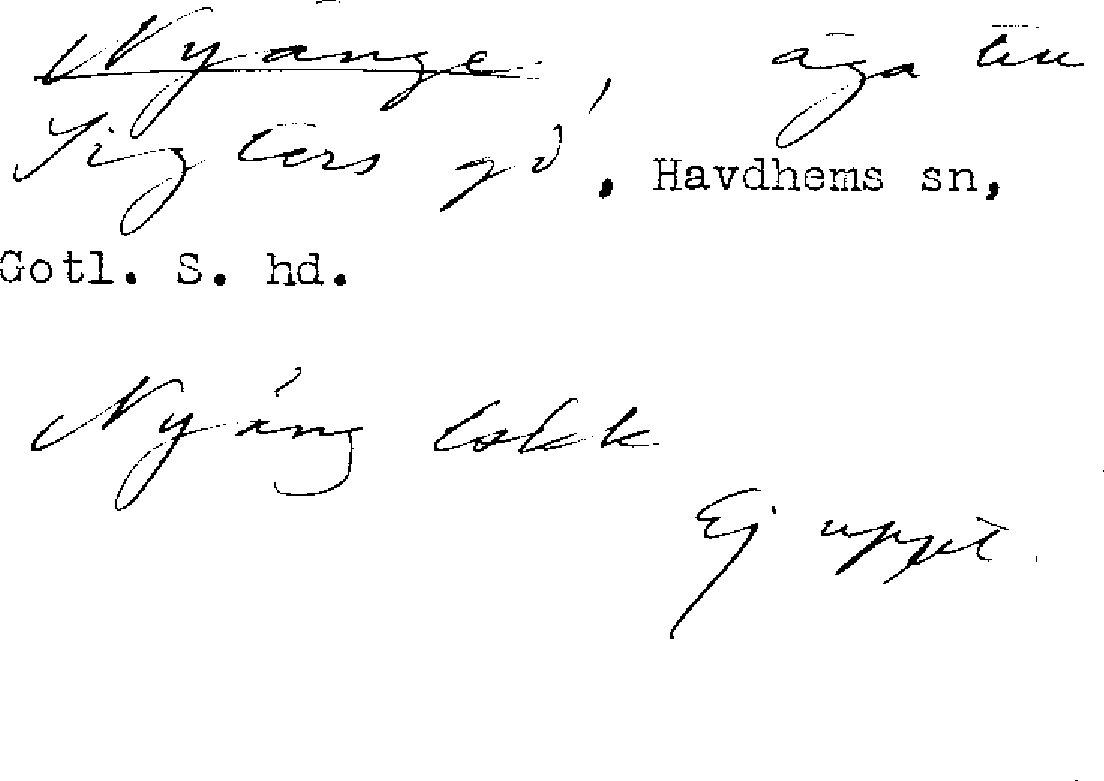 Nyänge, äga till
Sigters gd, Havdhems sn,
Gotl. S. hd.
Nyäng
Ej uppt.